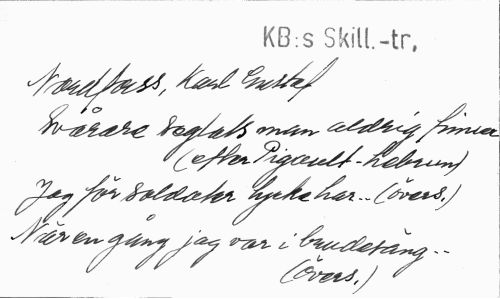 KB:s Skill.-tr.
Nordforss, Karl Gustaf
Svårare sagtats man aldrig finner
(efter Pigault-Lebrun)
Jag för soldater tycke har.. (övers.)
När en gång jag var i brudesäng..
(övers.)